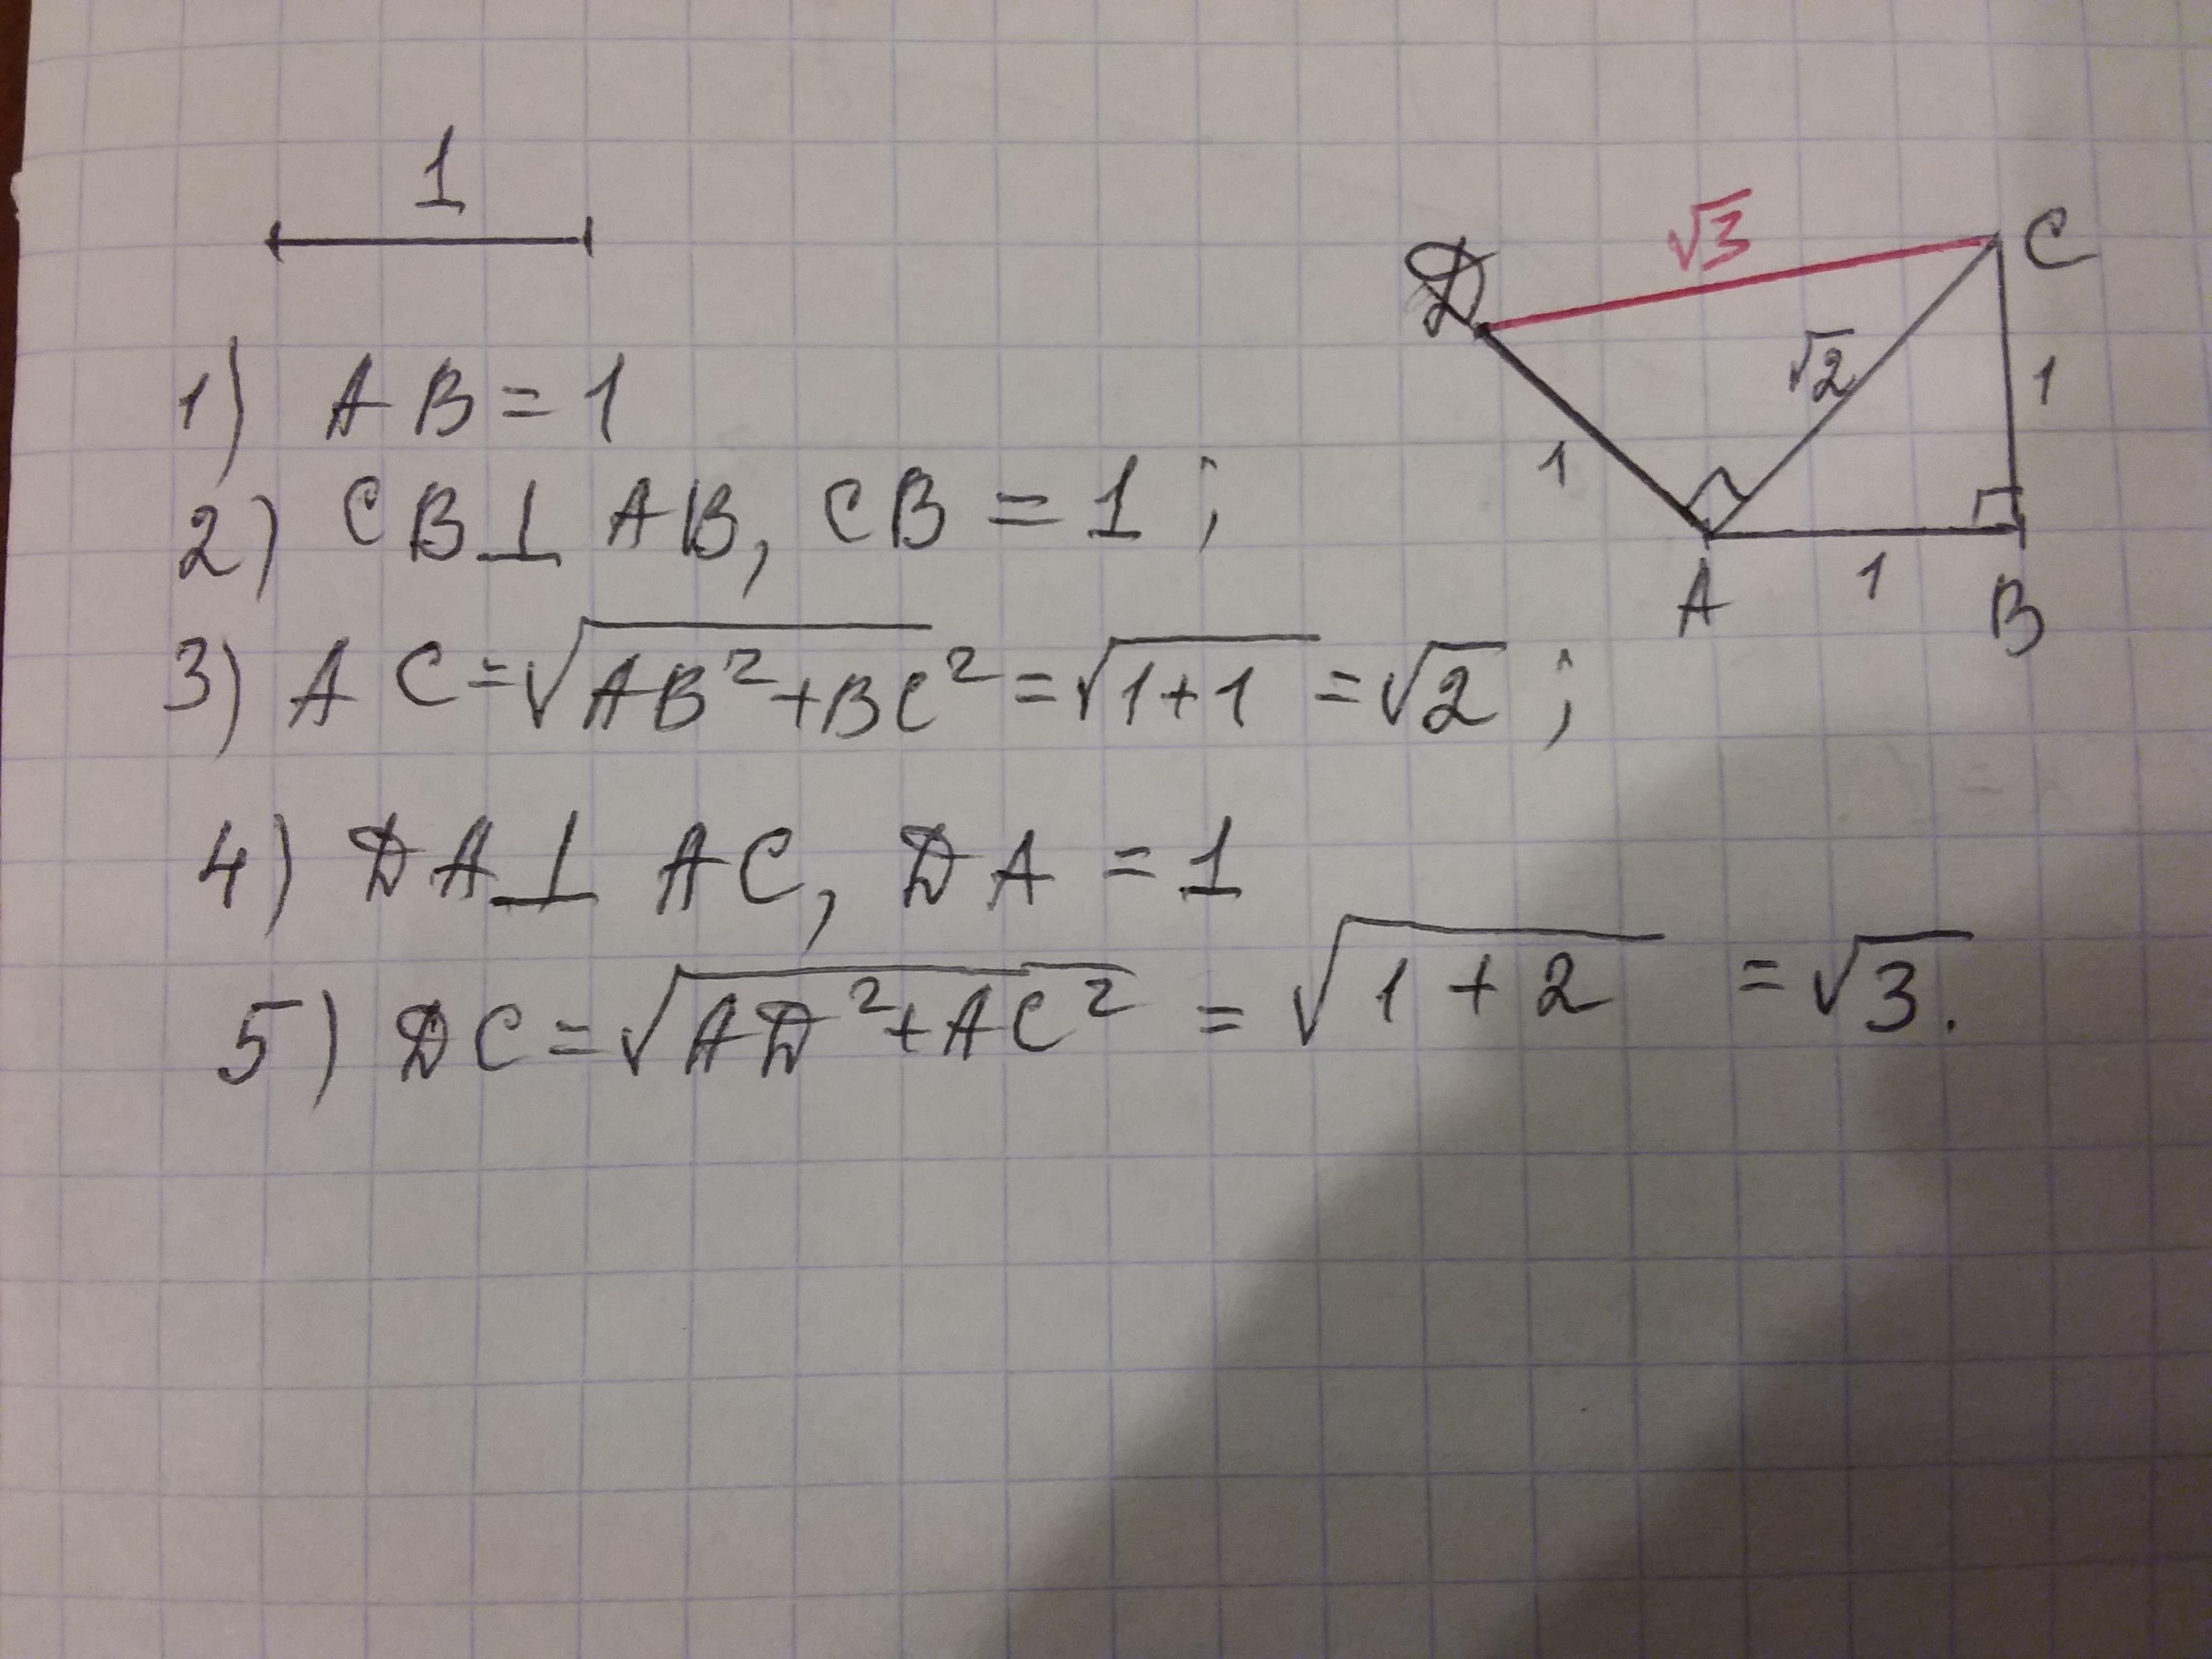 1
√3
D
C
√2
1
1
A
1
B
1) AB = 1
2) CB ⊥ AB, CB = 1 ;
3) AC = √AB² + BC² = √1+1 = √2 ;
4) DA ⊥ AC, DA = 1
5) DC = √AD² + AC² = √1 + 2 = √3.